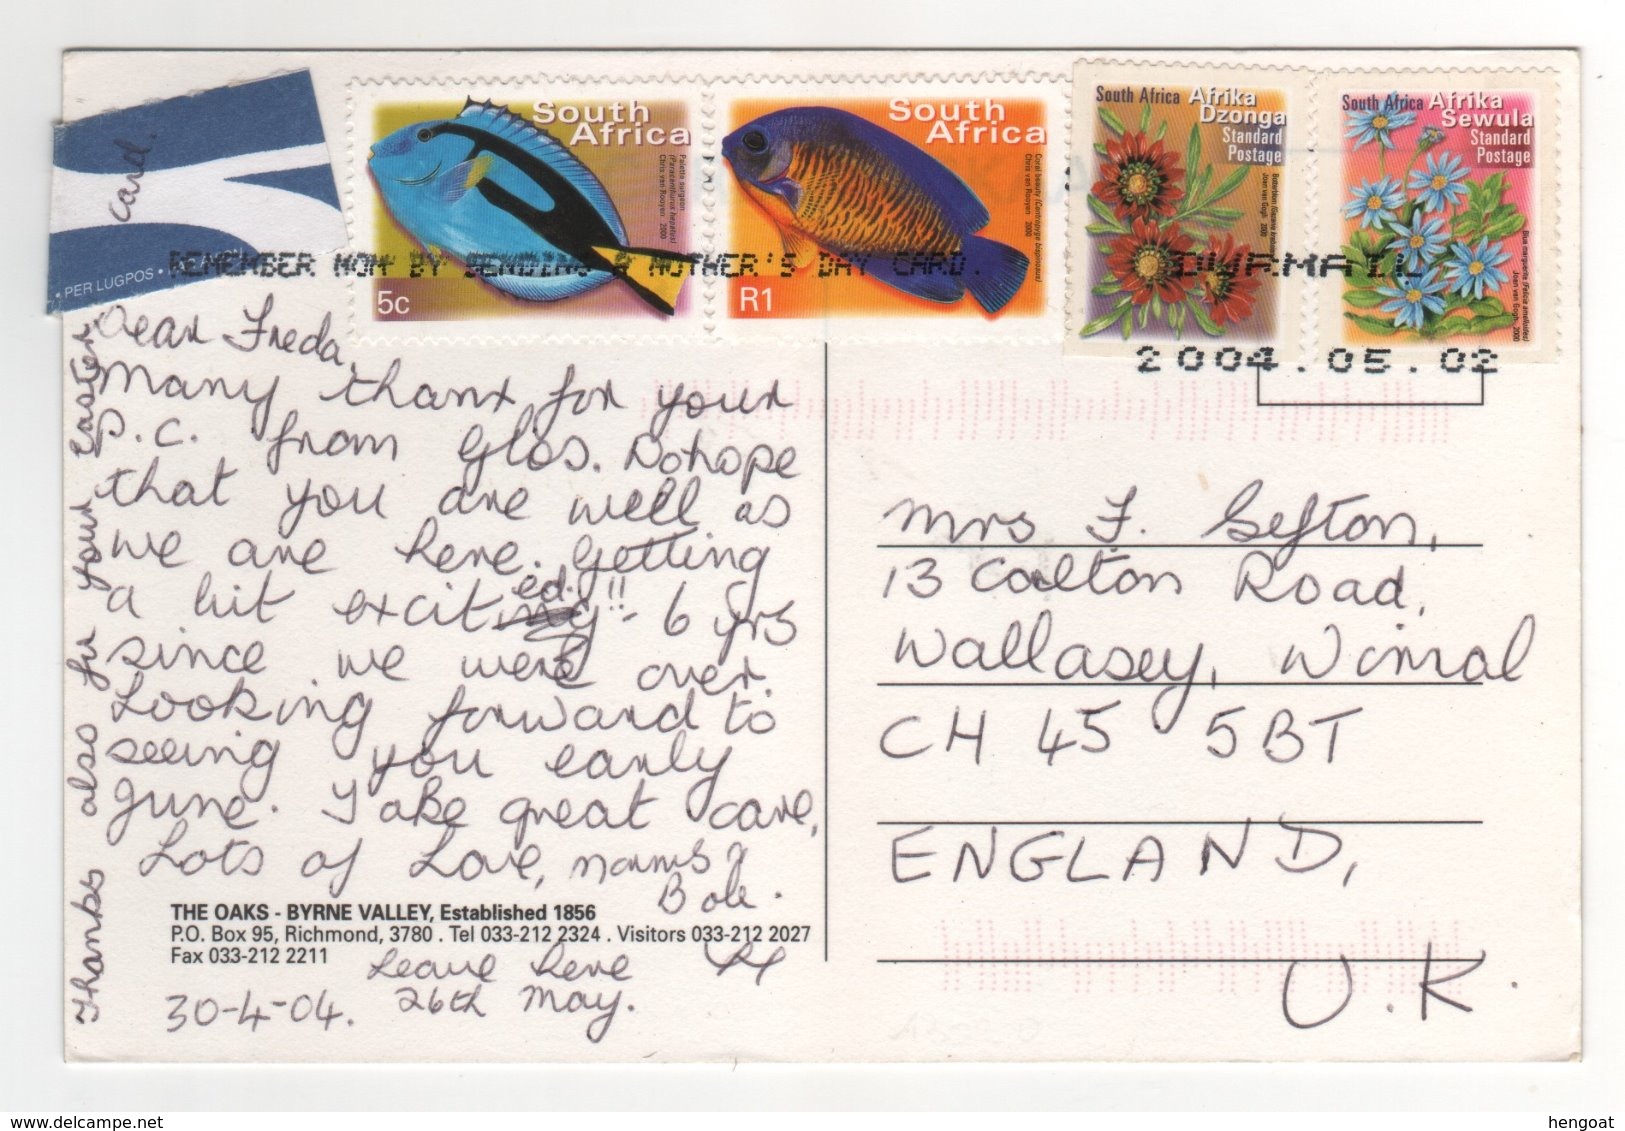 South Africa
Palette surgeon
(Paracanthurus hepatus)
Chris van Rooyen 2000
5c
South Africa
Coral beauty (Centropyge bispinosus)
Chris van Rooyen 2000
R1
South Africa Afrika
Dzonga
Standard
Postage
Joan van Gogh 2000
South Africa Afrika
Sewula
Standard
Postage
Blue marguerite (Felicia amelloides)
Joan van Gogh 2000
PER LUGPOS •
REMEMBER MOM BY SENDING A MOTHER'S DAY CARD.
2004.05.02
Dear Freda,
Many thanx for your
P.C. from Glos. Do hope
that you are well as
we are here. Getting
a bit excited!! - 6 yrs
since we were over.
Looking forward to
seeing you early
June. Take great care,
Lots of Love,
THE OAKS - BYRNE VALLEY, Established 1856
P.O. Box 95, Richmond, 3780 . Tel 033-212 2324 . Visitors 033-212 2027
Fax 033-212 2211
Leave here
26th May.
30-4-04.
Thanks also for your Easter
card.
Mrs F. Sefton,
13 Colton Road,
Wallasey, Wirral
CH 45 5BT
ENGLAND,
U.K.
hengoat